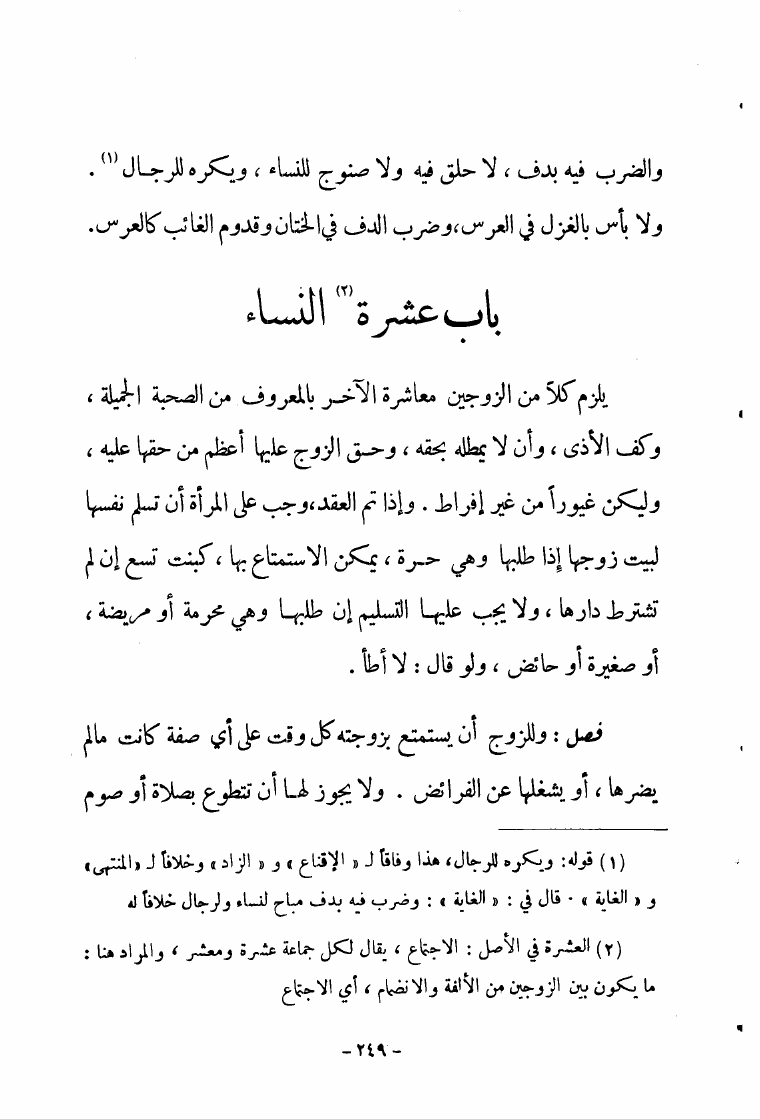 والضرب فيه بدف ، لا حلق فيه ولا صنوج للنساء ، ويكره للرجال (١) .
ولا بأس بالغزل في العرس، وضرب الدف في الختان وقدوم الغائب كالعرس.
باب عشرة (٢) النساء
يلزم كلاً من الزوجين معاشرة الآخر بالمعروف من الصحبة الجميلة ،
وكف الأذى ، وأن لا يمطله بحقه ، وحق الزوج عليها أعظم من حقها عليه ،
وليكن غيوراً من غير إفراط . وإذا تم العقد، وجب على المرأة أن تسلم نفسها
لبيت زوجها إذا طلبها وهي حرة ، يمكن الاستمتاع بها ، كبنت تسع إن لم
تشترط دارها ، ولا يجب عليها التسليم إن طلبها وهي محرمة أو مريضة ،
أو صغيرة أو حائض ، ولو قال : لا أطأ .
فصل : وللزوج أن يستمتع بزوجته كل وقت على أي صفة كانت مالم
يضرها ، أو يشغلها عن الفرائض . ولا يجوز لها أن تتطوع بصلاة أو صوم
(١) قوله: ويكره للرجال، هذا وفاقاً لـ « الإقناع » و « الزاد » وخلافاً لـ «المنتهى»
و « الغاية » - قال في : « الغاية » : وضرب فيه بدف مباح لنساء ولرجال خلافاً له
(٢) العشرة في الأصل : الاجتماع ، يقال لكل جماعة عشرة ومعشر ، والمراد هنا :
ما يكون بين الزوجين من الألفة والانضمام ، أي الاجتماع
- ٢٤٩ -